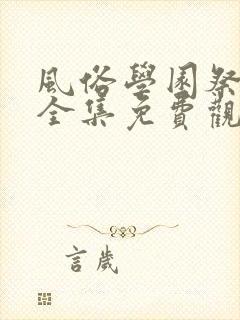 風俗學園祭
全集免費觀
言歲